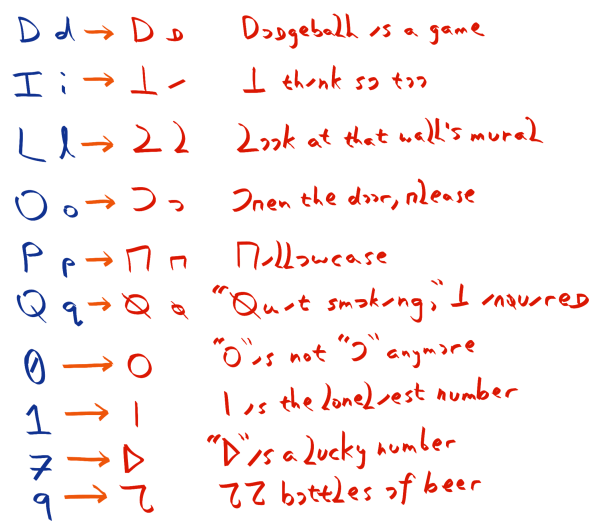 D d → D ᴅ Dodgeball is a game
I i → ⊥ ّ⸝ I think so too
L l → 2 2 Look at that wall's mural
O o → Ɔ ɔ Open the door, please
P p → Π п Pillowcase
Q q → Ø ø "Quit smoking," I inquired
0 → O "0" is not "Ɔ" anymore
1 → | 1 is the loneliest number
7 → ▷ "▷" is a lucky number
9 → Ɀ 99 bottles of beer